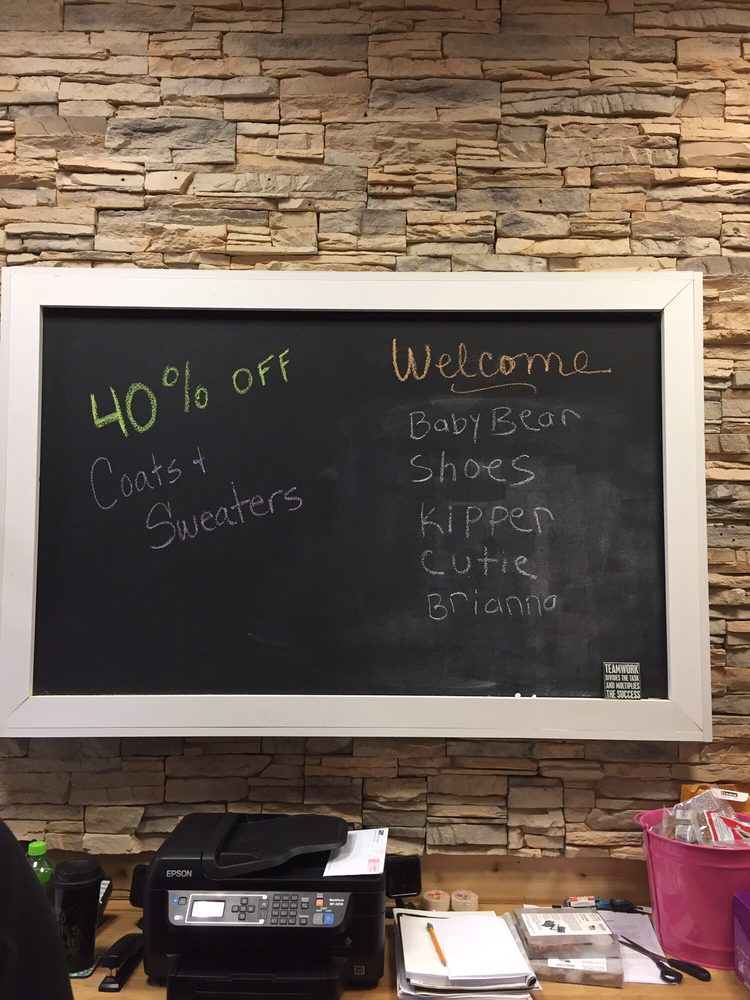 40% OFF
Coats +
Sweaters
Welcome
Baby Bear
Shoes
Kipper
Cutie
Brianna
TEAMWORK
DIVIDES THE TASK
AND MULTIPLIES
THE SUCCESS
EPSON
WorkForce